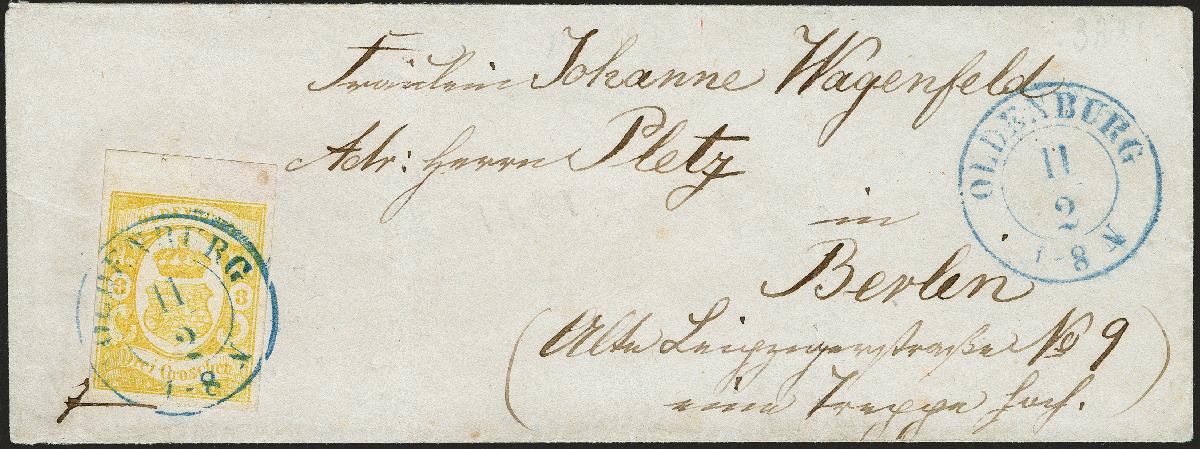 Fräulein Johanne Wagenfeld
Adr: Herrn Pletz
in
Berlin
(Alte Leipzigerstraße No 9
eine Treppe hoch.)
OLDENBURG
11
2
7-8 N
OLDENBURG
3 3
Drei Groschen
OLDENBURG
11
2
7-8 N